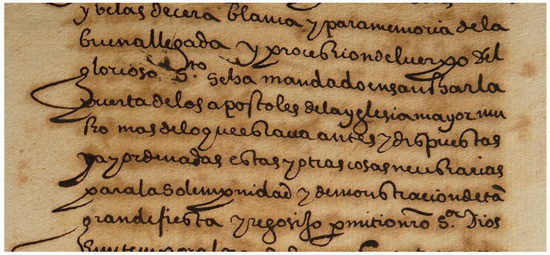 y velas de cera blanca y para memoria de la
buena llegada y procesion del cuerpo del
glorioso sto se ha mandado ensanchar la
puerta de los apostoles de la yglesia mayor mu
cho mas de lo que estava antes y dispuestas
ya y ordenadas estas y otras cosas necesarias
para la solempnidad y demonstracion de ta
grande fiesta y regosijo permitio nro sor Dios